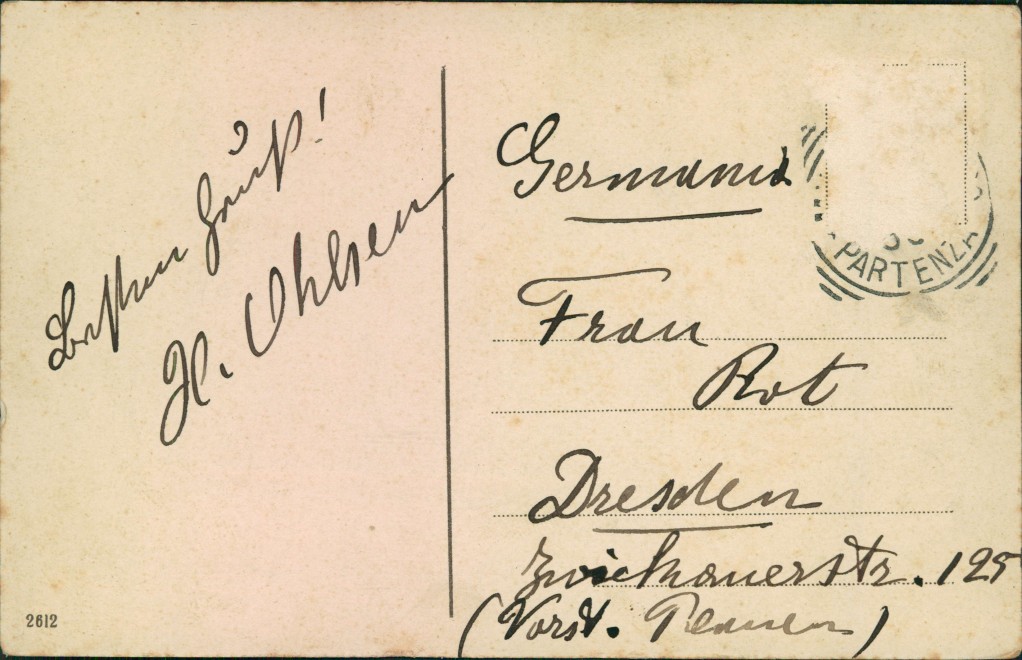 Besten Gruß!
H. Ohlsen
Germania
PARTENZA
Frau
Rot
Dresden
Zwickauerstr. 125
(Vorst. Plauen)
2612